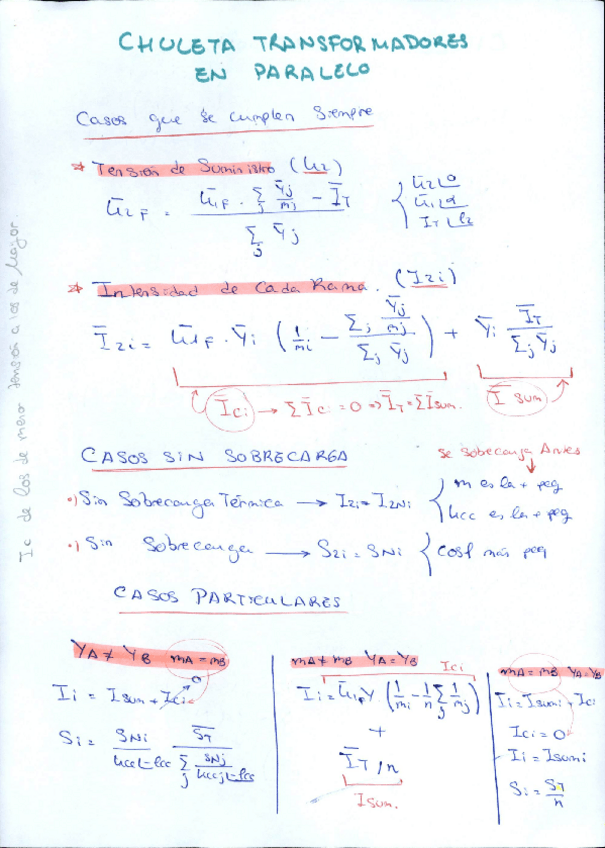 CHULETA TRANSFORMADORES
EN PARALELO
Casos que se cumplen Siempre
* Tensión de Suministro (U2)
Ū2F = (Ū1F · Σj Ȳj/mj − ĪT) / Σj Ȳj
{ Ū2∠0
Ū1∠α
IT∠φ2
* Intensidad de Cada Rama. (I2i)
Ī2i = Ū1F · Ȳi (1/mi − (Σj Ȳj/mj) / (Σj Ȳj)) + Ȳi ĪT / Σj Ȳj
Īci → Σ Īci = 0 => ĪT = Σ Īsum.
Ī sum
Ic de los de menor tensión a los de Mayor.
CASOS SIN SOBRECARGA
se sobrecarga Antes
•) Sin Sobrecarga Térmica → I2i = I2Ni { m es la + peq
Ucc es la + peq
•) Sin Sobrecarga → S2i = SNi { cosφ más peq
CASOS PARTICULARES
YA ≠ YB mA = mB
Ii = Isum + Ici
0
Si = SNi / Ucci∠-εcc · S̄T / Σj SNj / Uccj∠-εcc
mA ≠ mB YA = YB
Ici
Ii = Ū1F Y · (1/mi − 1/n Σj 1/mj)
+
ĪT/n
Isum.
mA = mB YA = YB
Ii = Isumi + Ici
Ici = 0
Ii = Isumi
Si = ST/n